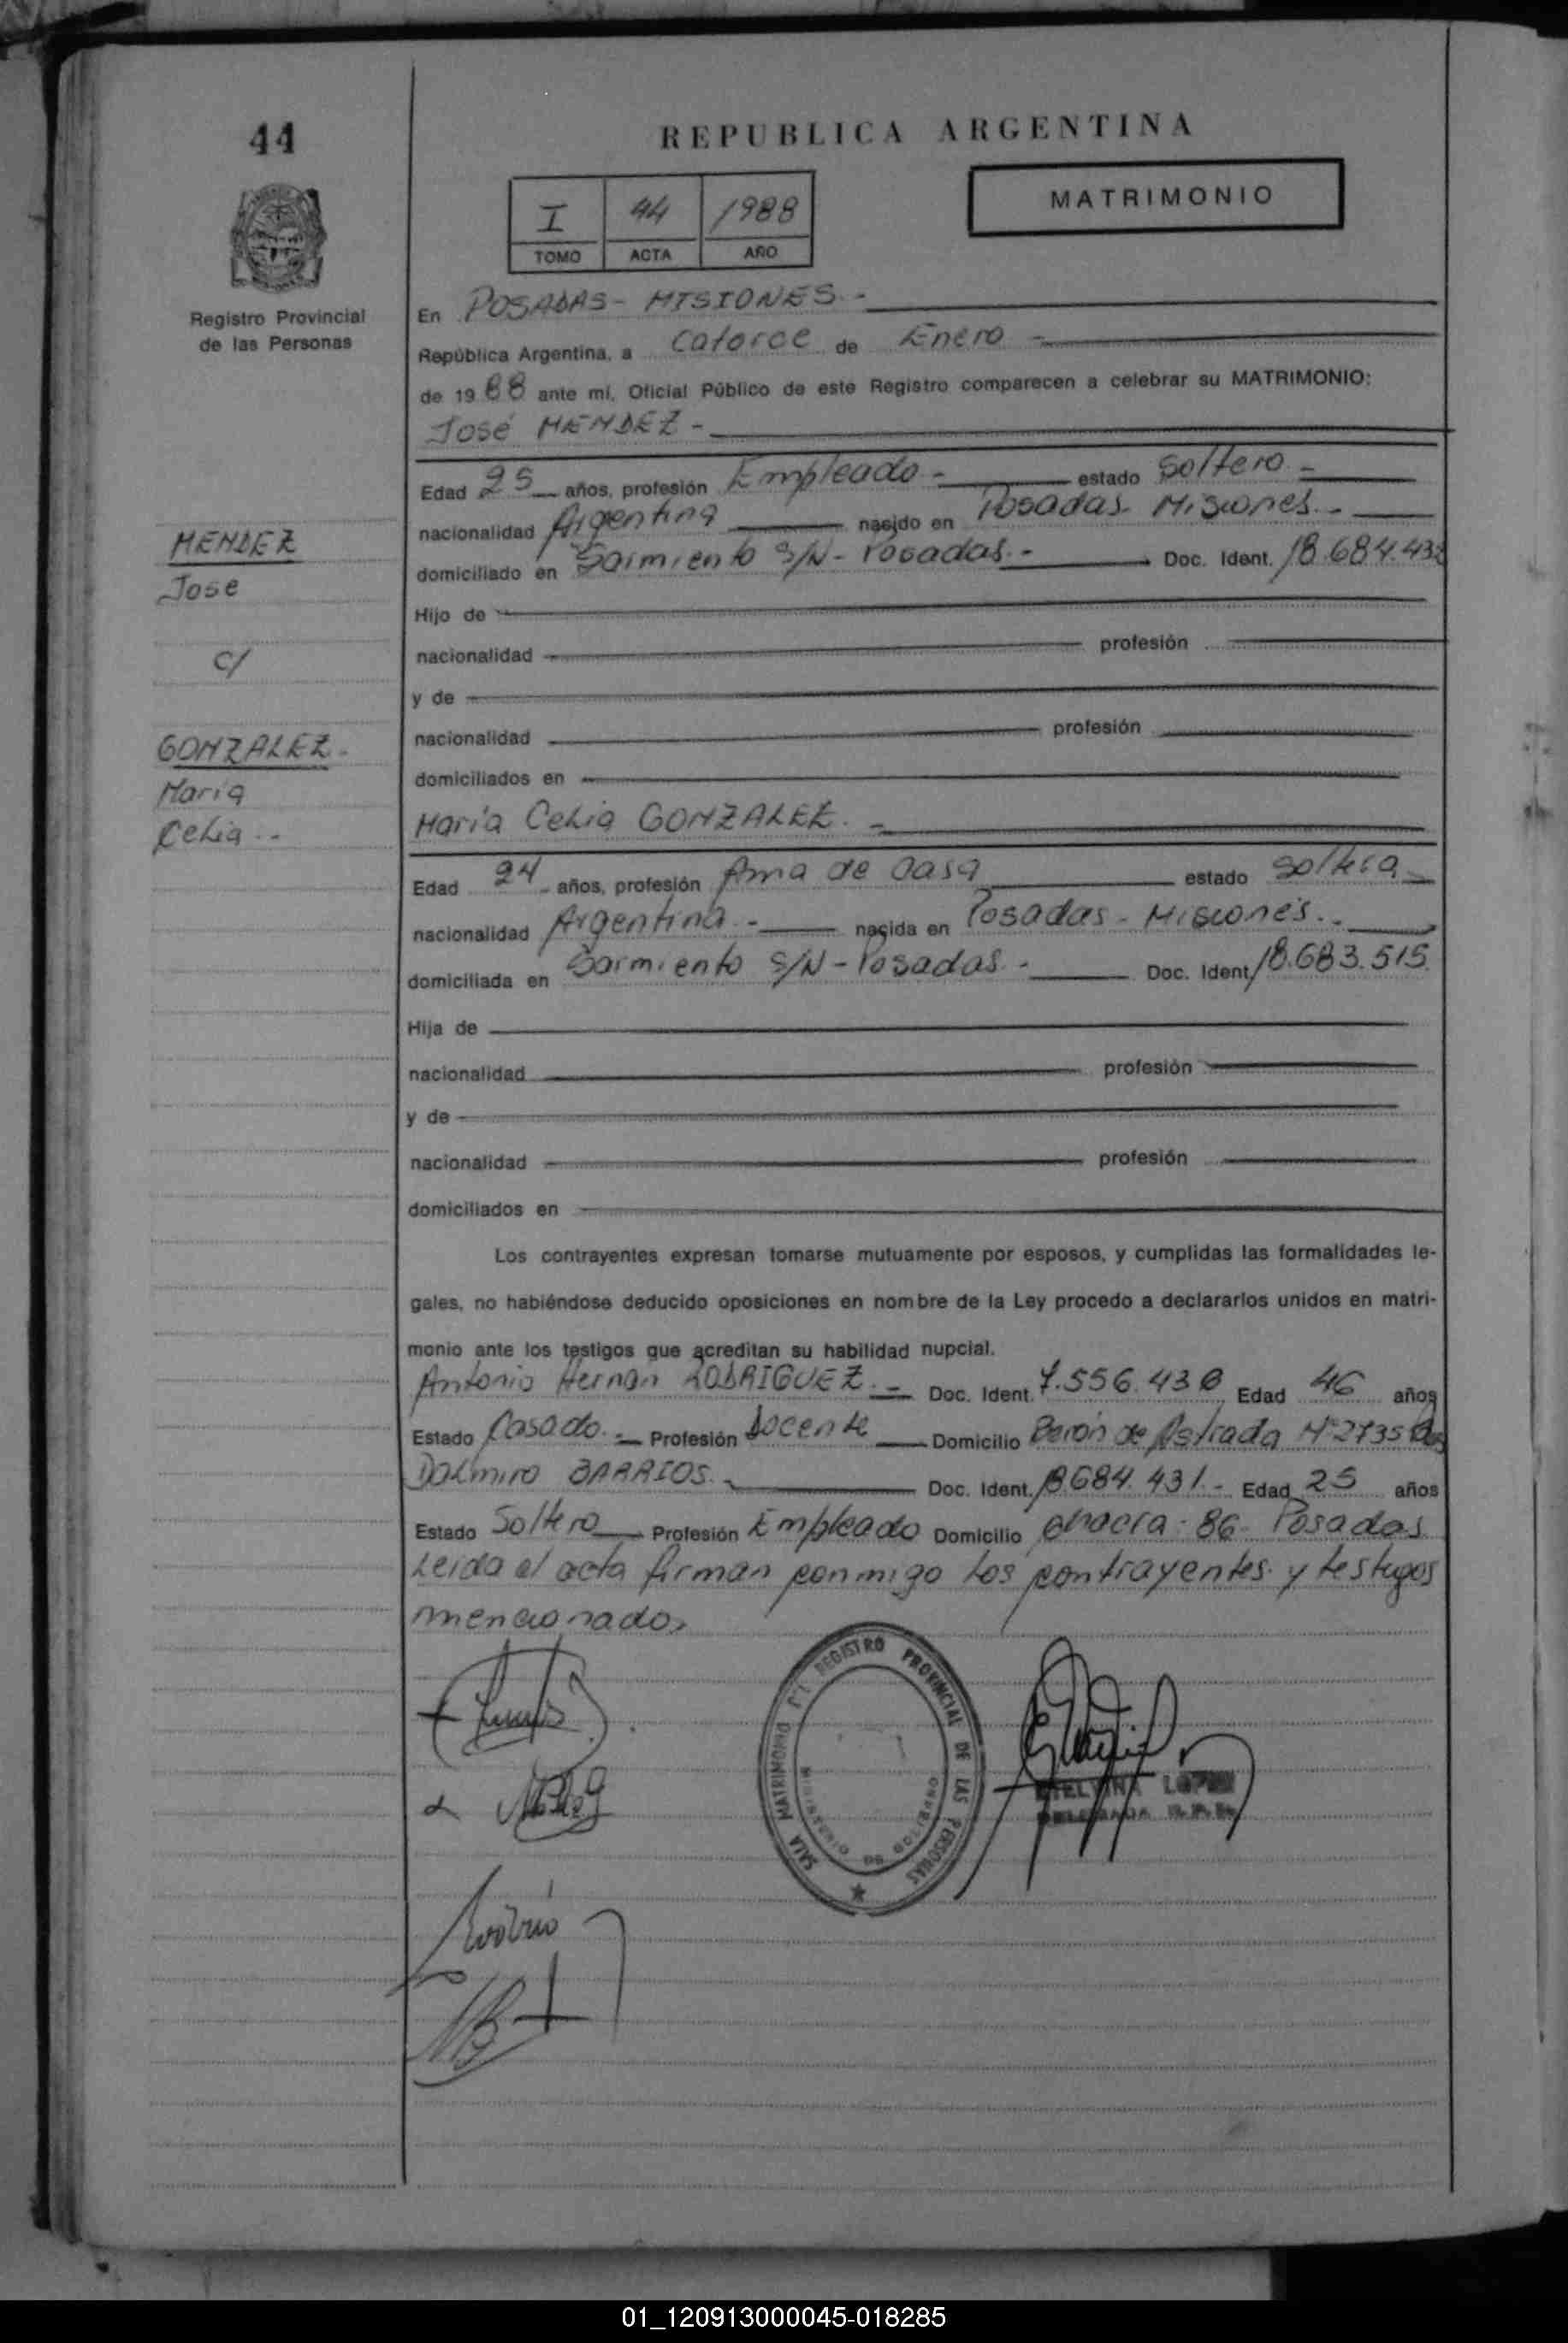 44
Registro Provincial
de las Personas
MENDEZ
Jose
c/
GONZALEZ -
Maria
Celia --
REPUBLICA ARGENTINA
MATRIMONIO
I 44 1988
TOMO ACTA AÑO
En POSADAS - MISIONES -
República Argentina, a catorce de Enero -
de 1988 ante mí, Oficial Público de este Registro comparecen a celebrar su MATRIMONIO:
José MENDEZ -
Edad 25 años, profesión Empleado - estado Soltero -
nacionalidad Argentina nacido en Posadas - Misiones -
domiciliado en Sarmiento S/N - Posadas - Doc. Ident. 18.684.432
Hijo de
nacionalidad profesión
y de
nacionalidad profesión
domiciliados en
María Celia GONZALEZ. -
Edad 24 años, profesión Ama de Casa estado Soltera
nacionalidad Argentina - nacida en Posadas - Misiones.
domiciliada en Sarmiento S/N - Posadas - Doc. Ident 18.683.515
Hija de
nacionalidad profesión
y de
nacionalidad profesión
domiciliados en
Los contrayentes expresan tomarse mutuamente por esposos, y cumplidas las formalidades le-
gales, no habiéndose deducido oposiciones en nombre de la Ley procedo a declararlos unidos en matri-
monio ante los testigos que acreditan su habilidad nupcial.
Antonio Hernan RODRIGUEZ. - Doc. Ident. 7.556.43 Edad 46 años
Estado Casado. - Profesión Docente Domicilio Berón de Astrada Nº 2735
DALMIRO BARRIOS. - Doc. Ident. 18.684.431 - Edad 25 años
Estado Soltero Profesión Empleado Domicilio chacra - 86 - Posadas
Leida el acta firman conmigo los contrayentes y testigos
mencionados
SALA MATRIMONIO DEL REGISTRO PROVINCIAL DE LAS PERSONAS
MINISTERIO DE GOBIERNO
ETELVINA LOPEZ
DELEGADA
01_120913000045-018285